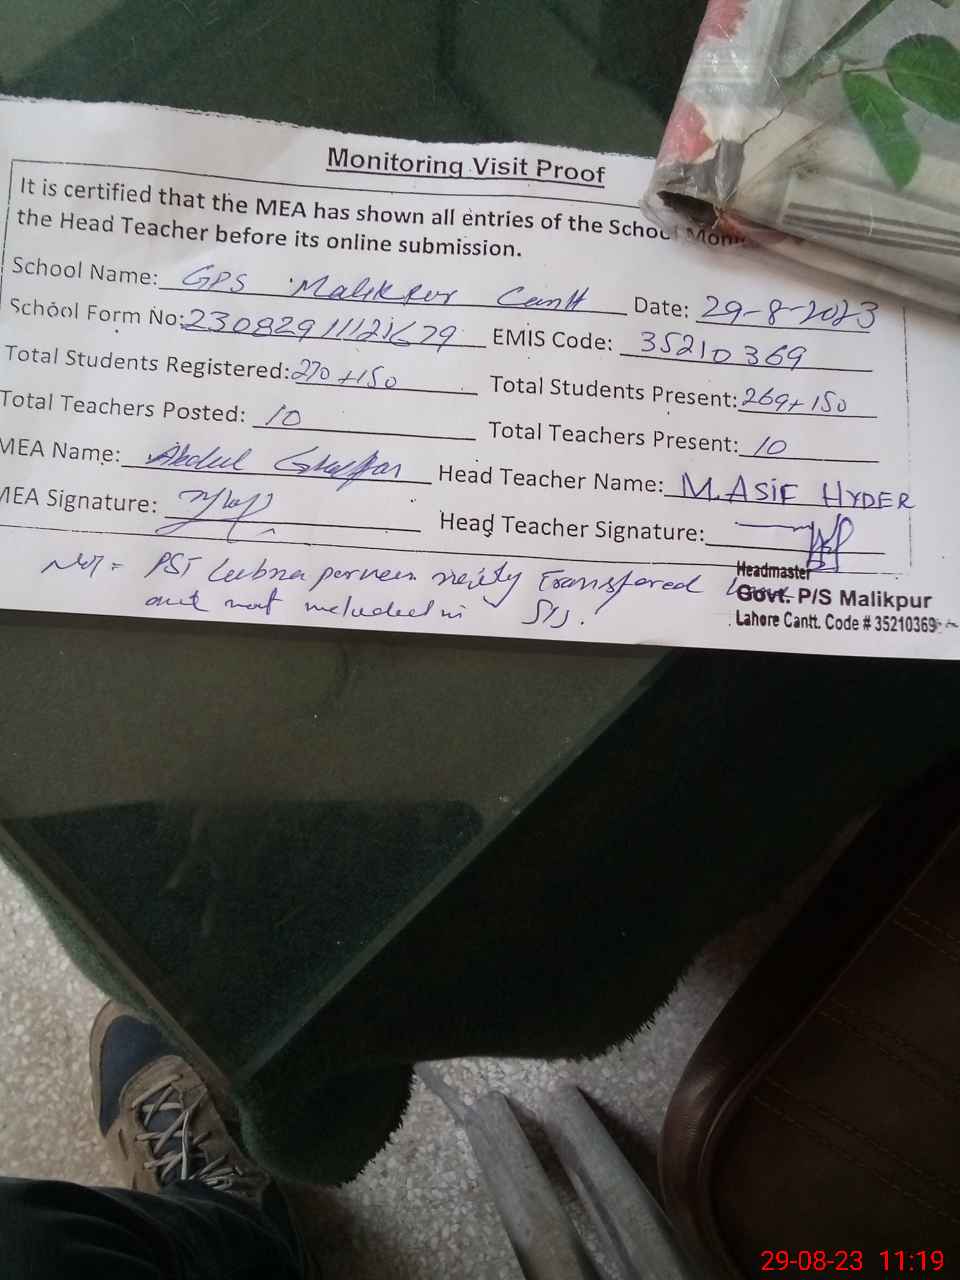 Monitoring Visit Proof
It is certified that the MEA has shown all entries of the School
the Head Teacher before its online submission.
School Name: GPS Malikpur Cantt Date: 29-8-2023
School Form No: 23082911121679 EMIS Code: 35210369
Total Students Registered: 270+150 Total Students Present: 269+150
Total Teachers Posted: 10 Total Teachers Present: 10
MEA Name: Abdul Ghaffar Head Teacher Name: M. ASIF HYDER
MEA Signature: Head Teacher Signature:
PST Lubna perveen Transfered
and not included in SIS.
Headmaster
Govt. P/S Malikpur
Lahore Cantt. Code # 35210369
29-08-23 11:19